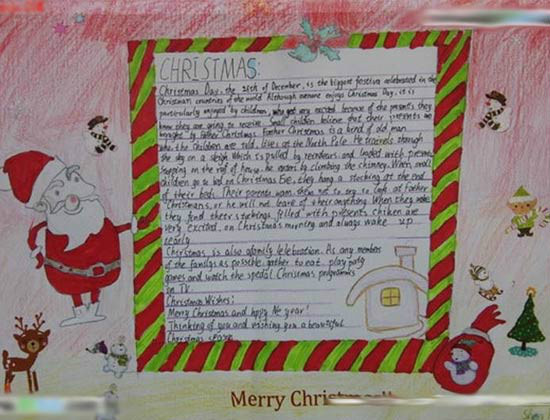 CHRISTMAS:
Christmas Day, the 25th of December, is the biggest festive celebrated in the
Christian countries of the world Although everone enjoys Christmas Day, it is
particularly enjoyed by children, who get very excited because of the presents they
know they are going to receive. Small children believe that their presents are
brought by Father Christmas. Father Christmas is a kind of old man
who, the children are told, lives at the North Pole. He travels though
the sky on a sleigh which is pulled by reindeers and loaded with presents
stopping on the roof of house, he enters by climbing the chimney. When small
children go to bed on Christmas Eve, they hang a stocking at the end
of their bed. Their parents warn them not to try to look at father
Christmas, or he will not leave of their anything. When they wake
they find their stockings filled with presents
very excited, on Christmas morning and always wake up
early
Christmas is also a family celebration. As any members
of the familys as possible, gather to eat, play party
games and watch the special Christmas programmes
in TV.
Christmas Wishes:
Merry Christmas and happy Ne year!
Thinking of you and wishing you a beautiful
Christmas
Merry Christmas!!